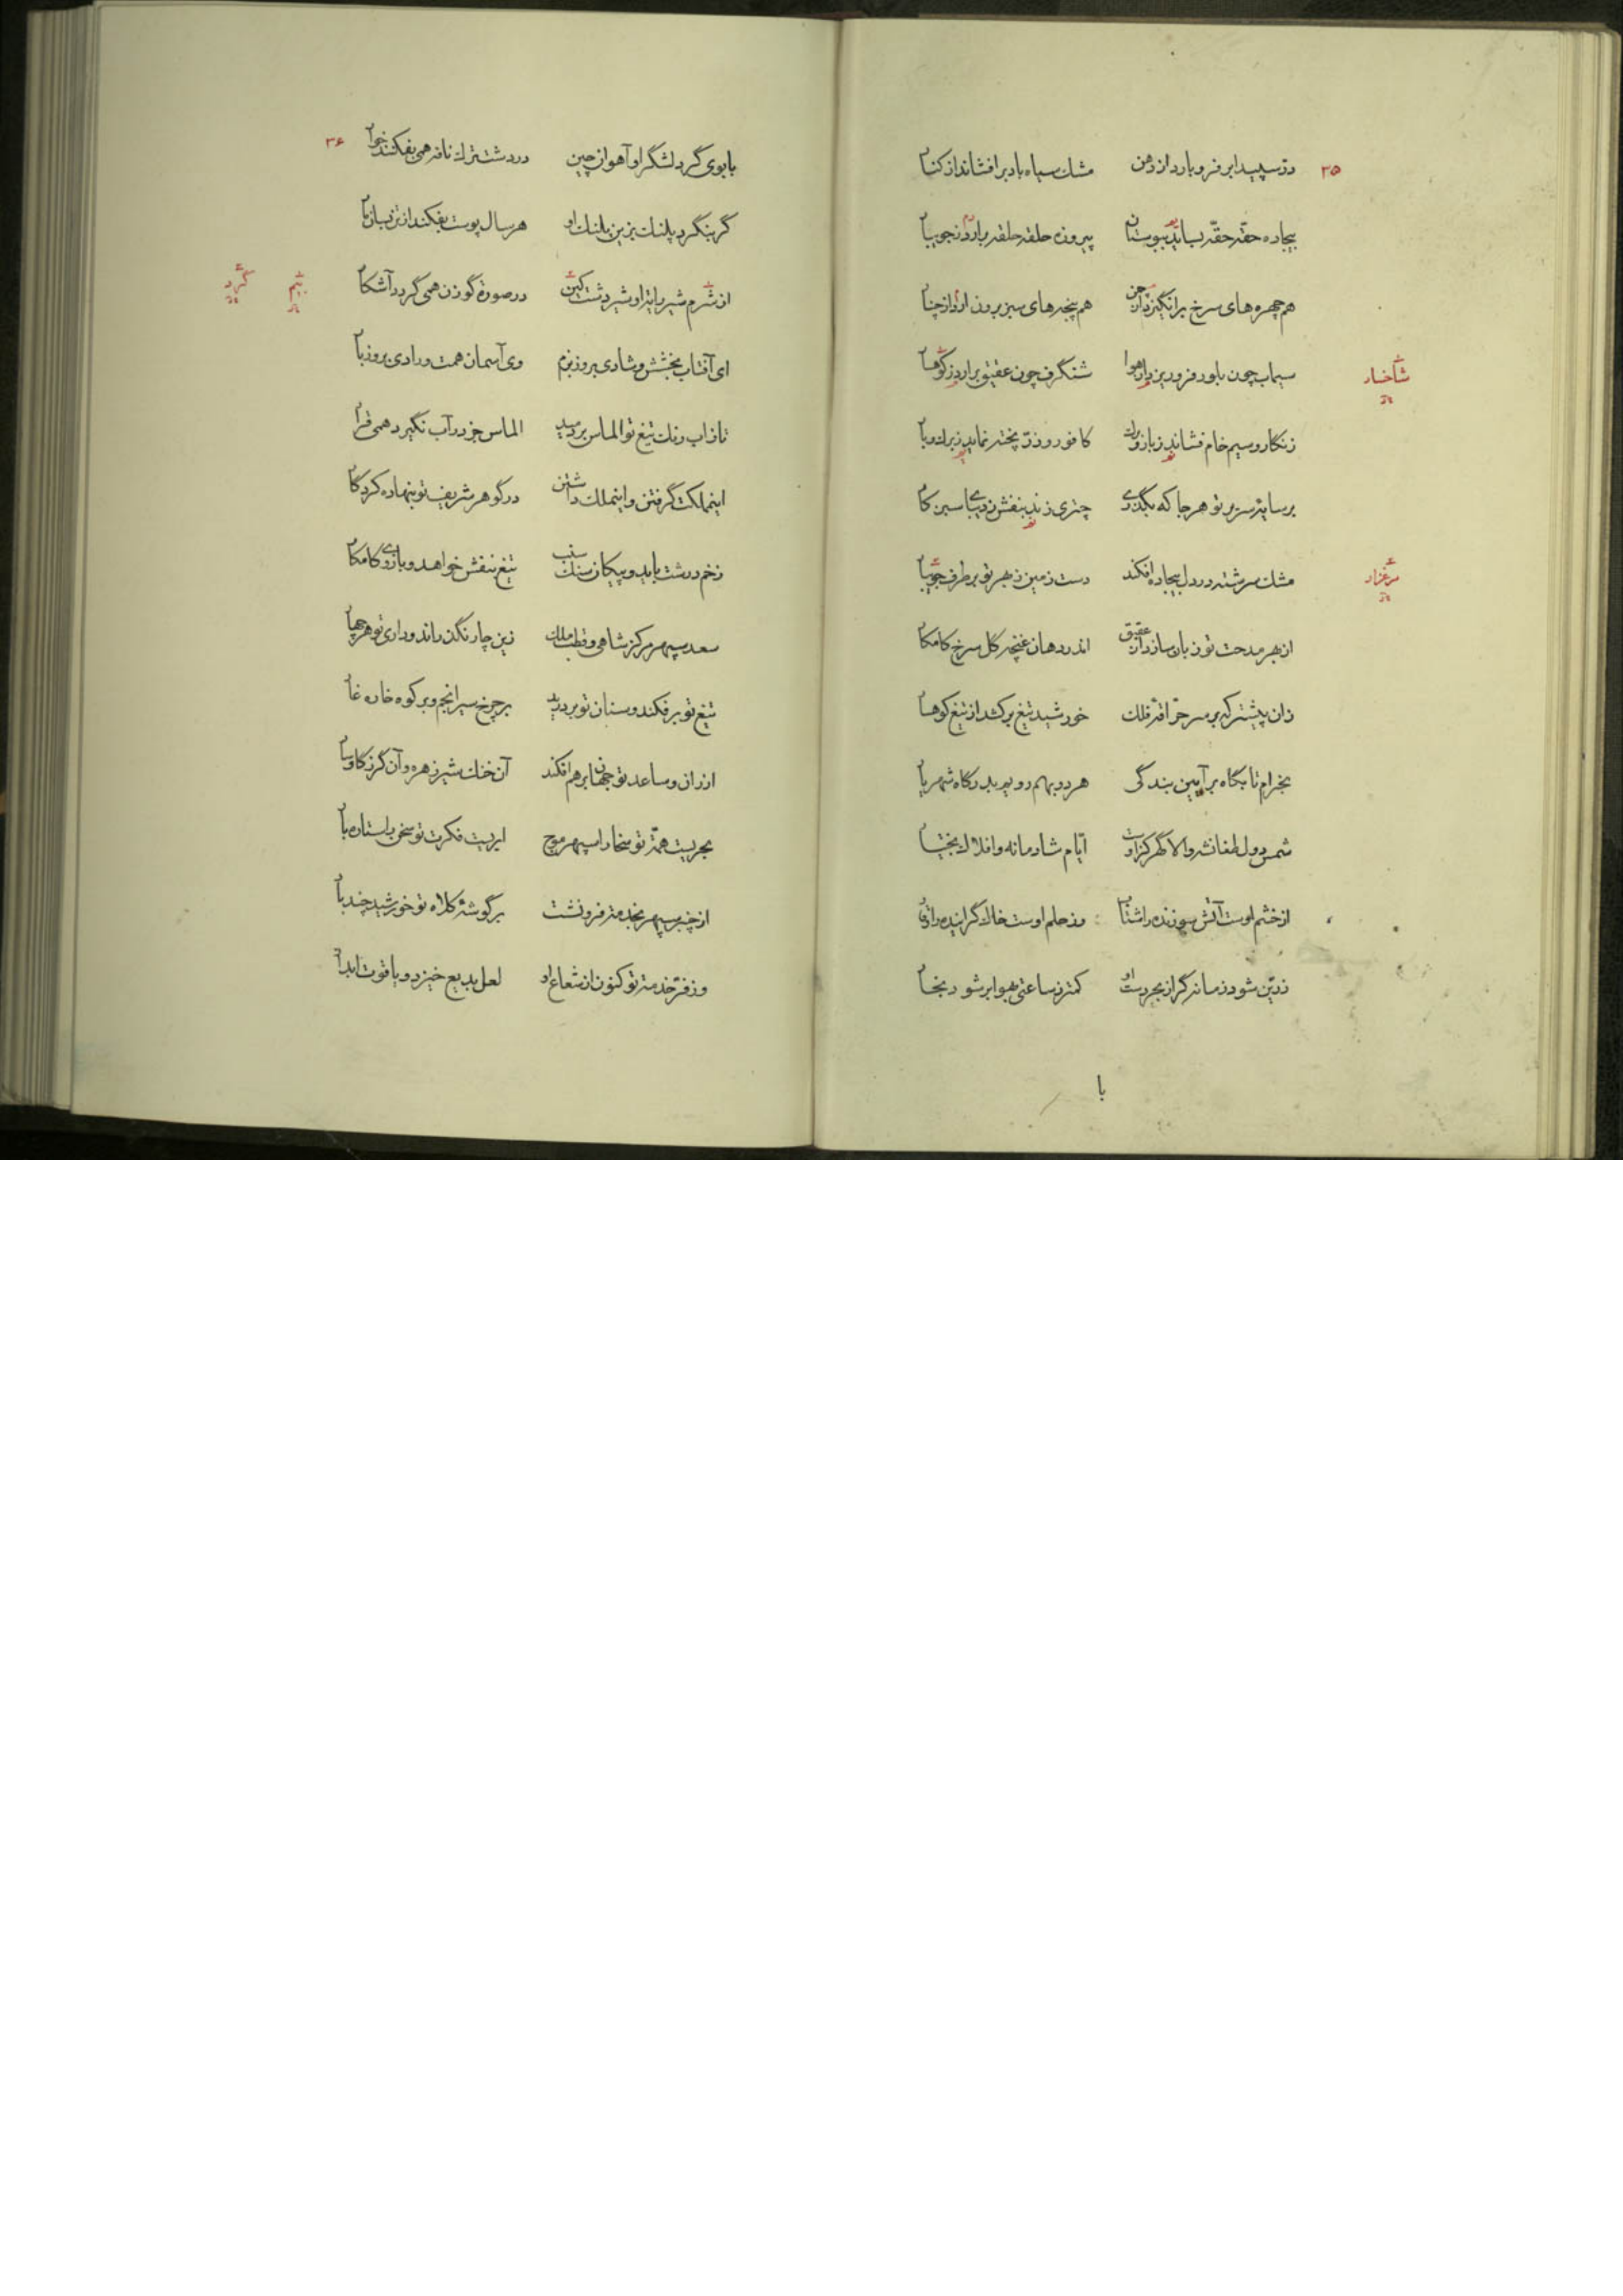 ۳۵
درّ سپید ابر فرو بارد از دهن مشك سیاه باد برافشاند از کنار
بیجاده حقّه حقّه بساند ببوستان پیروزه حلقه حلقه برارد ز جویبار
هم چهره‌های سرخ برانگیزد از سمن هم پنجه‌های سبز برون ارد از چنار
سیماب چون بلور فرو ریزد از هوا شنگرف چون عقیق برارد ز کوهسار
شاخسار
زنگار و سیم خام فشاند ز باز و زر پخته نماید ز برك و بار
بر سایه سریر تو هرجا که بگذری چتری زند بنفش ز دیبا سبن کار
مشك سرشته در دل بیجاده افکند دست زمین ز بهر تو بر طرف جویبار
مرغزار
از بهر مدحت تو زبان سازد از عقیق اندر دهان غنچه گل سرخ کامکار
زان پیشتر که بر سر خرّاقه فلك خورشید تیغ برکشد از تیغ کوهسار
بخرام تا پگاه بر آیین بندگی هر دو بهم رویم بدرگاه شهریار
شمس دول طغانشه والا گهر کزوست ایّام شادمانه و افلاك بختیار
از خشم اوست آتش سوزنده را شتاب وز حلم اوست خاك گراینده را قرار
زرّین شود زمانه گر از بحر دست او کمتر ز ساعتی بهوا بر شود بخار
با
۳۶
با بوی گرد لشگر او آهوان چین در دشت ترك نافه همی بفکنند خوار
گر بنگرد پلنك بزین پلنك او هر سال پوست بفکند از تن بسان مار
از شرم شیر رایت او شیر دشت کین در صورة گوزن همی گردد آشکار
بیم
گرد
ای آفتاب بخشش و شادی بروز بزم وی آسمان همت و رادی بروز بار
تا ز اب رنك تیغ تو الماس بردمید الماس جز در آب نگیرد همی قرار
این مملکت گرفتن و این ملك داشتن در گوهر شریف تو بنهاده کردگار
زخم درشت باید و پیکان سنك سنب تیغ بنفش خواهد و بازوی کامکار
سعد سپهر مرکز شاهی و قطب ملك زین چار نگذراند و داری تو هر چهار
تیغ تو برفکند و سنان تو بر درید بر چرخ سیر انجم و بر کوه خاره غار
از ران و ساعد تو جهان بر هم افکند آن خنك شیر زهره و آن گرز گاوسار
بحریست همّة تو سخا را سپهر موج ابریست فکرت تو سخن را ستاره بار
از چنبر سپهر بخدمت فرو نشست بر گوشهٔ کلاه تو خورشید چند بار
وز فرّ خدمت تو کنون از شعاع او لعل بدیع خیزد و یاقوت ابدار